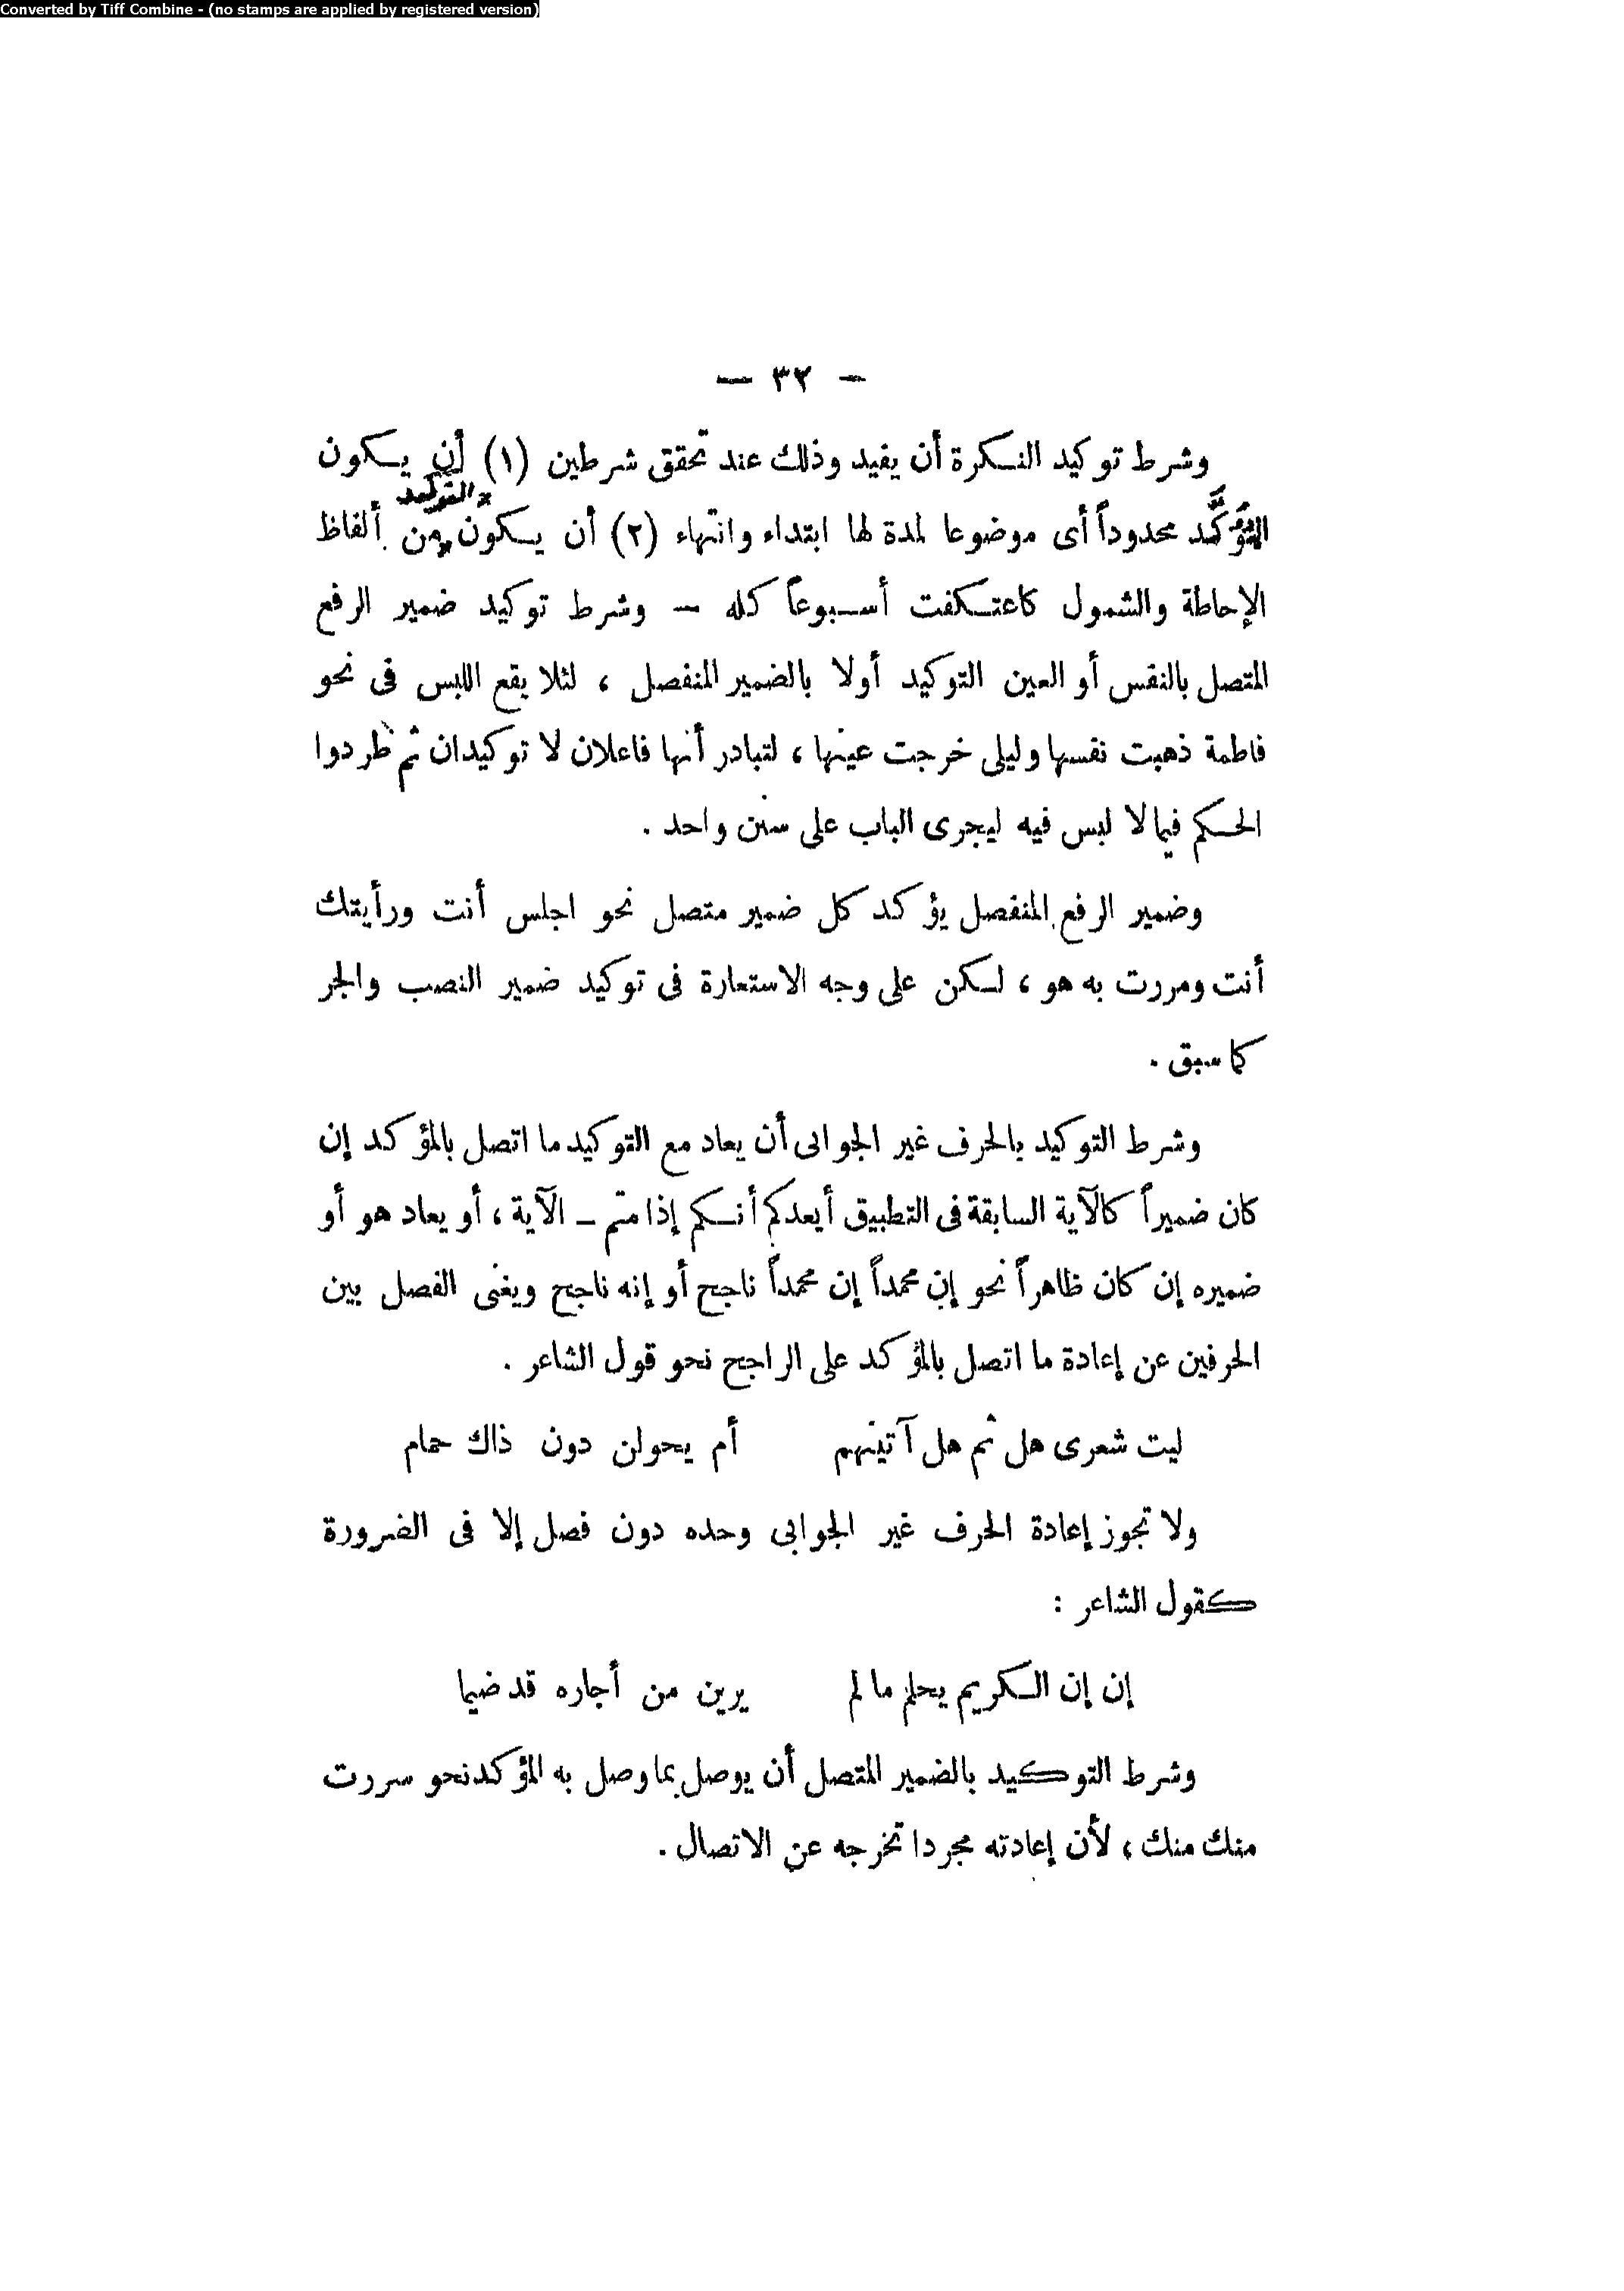 Converted by Tiff Combine - (no stamps are applied by registered version)
— ٣٢ —
وشرط توكيد النكرة أن يفيد وذلك عند تحقق شرطين (١) أن يكون
التوكيد
المؤكَّد محدوداً أى موضوعا لمدة لها ابتداء وانتهاء (٢) أن يكون من ألفاظ
الإحاطة والشمول كاعتكفت أسبوعاً كله – وشرط توكيد ضمير الرفع
المتصل بالنفس أو العين التوكيد أولا بالضمير المنفصل ، لئلا يقع اللبس فى نحو
فاطمة ذهبت نفسها وليلى خرجت عينها ، لتبادر أنها فاعلان لا توكيدان ثم طردوا
الحكم فيما لا لبس فيه ليجرى الباب على سنن واحد .
وضمير الرفع المنفصل يؤكد كل ضمير متصل نحو اجلس أنت ورأيتك
أنت ومررت به هو ، لكن على وجه الاستعارة فى توكيد ضمير النصب والجر
كما سبق .
وشرط التوكيد بالحرف غير الجوابى أن يعاد مع التوكيد ما اتصل بالمؤكد إن
كان ضميراً كالآية السابقة فى التطبيق أيعدكم أنكم إذا متم – الآية ، أو يعاد هو أو
ضميره إن كان ظاهراً نحو إن محمداً إن محمداً ناجح أو إنه ناجح ويغنى الفصل بين
الحرفين عن إعادة ما اتصل بالمؤكد على الراجح نحو قول الشاعر .
ليت شعرى هل ثم هل آتينهم أم يحولن دون ذاك حمام
ولا تجوز إعادة الحرف غير الجوابى وحده دون فصل إلا فى الضرورة
كقول الشاعر :
إن إن الكريم يحلم ما لم يرين من أجاره قد ضيما
وشرط التوكيد بالضمير المتصل أن يوصل بما وصل به المؤكد نحو سررت
منك منك ، لأن إعادته مجردا تخرجه عن الاتصال .